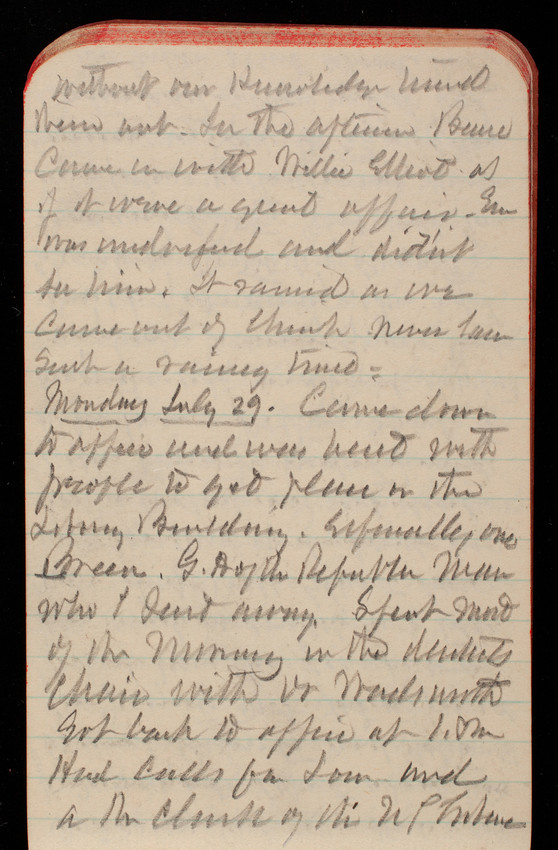 without our knowledge
him out. In the afternoon
Came in with Willie Elliot as
if it were a great affair. Em
was and didn't
see him. It rained as we
came out of Church never saw
such a rainy time =
Monday July 29. Came down
to office and was with
people to get place on the
Library Building. Especially one
Breen. G. Man
who I sent away. Spent most
of the Morning in the dentists
Chair with Dr Wadsworth
Got back to office at 1.
Had calls from and
a Mr Clark of the N Y Tribune